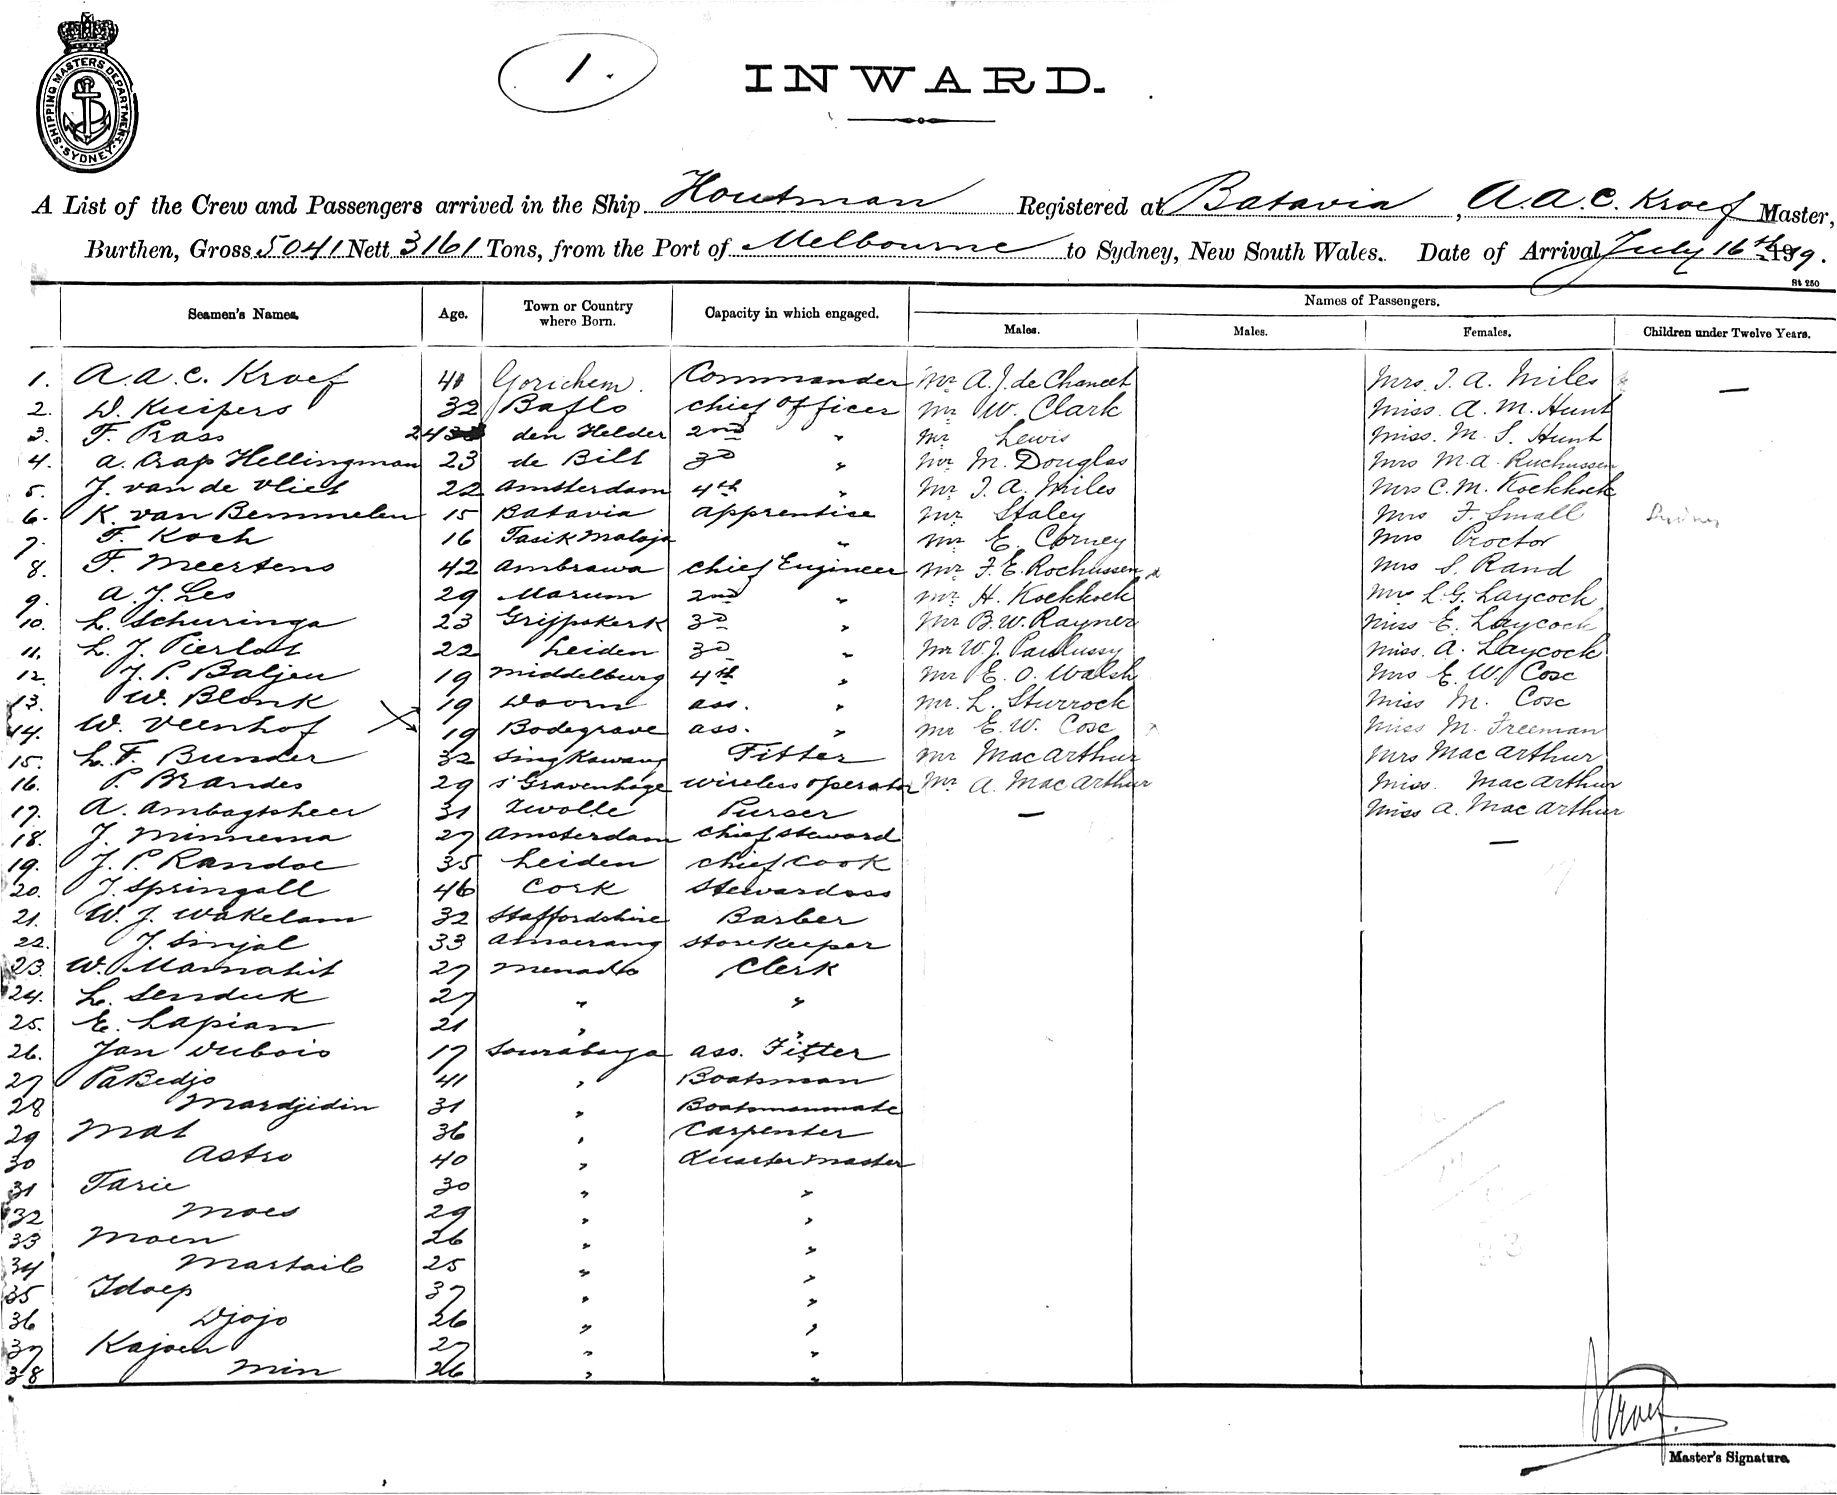 SHIPPING MASTERS DEPARTMENT. SYDNEY
1.
INWARD.
A List of the Crew and Passengers arrived in the Ship Houtman Registered at Batavia, A.A.C. Kroef Master,
Burthen, Gross 5041 Nett 3161 Tons, from the Port of Melbourne to Sydney, New South Wales. Date of Arrival July 16th 1919.
St 250
Seamen's Names. Age. Town or Country where Born. Capacity in which engaged. Names of Passengers.
Males. Males. Females. Children under Twelve Years.
1. A.A.C. Kroef 41 Gorichem. Commander Mr A.J. de Chaneet Mrs. J. A. Miles —
2. D. Kuipers 32 Baflo chief officer Mr W. Clark Miss. A. M. Hunt
3. F. Prass 24 den Helder 2nd " Mr Lewis Miss. M. S. Hunt
4. A. Crap Hellingman 23 de Bilt 3D " Mr M. Douglas Mrs M.A. Ruchussen
5. J. van de Vliet 22 Amsterdam 4th " Mr J. A. Miles Mrs C. M. Koekkoek
6. K. van Bemmelen 15 Batavia apprentice Mr Staley Mrs F. Small Sydney
7. F. Koch 16 Tasik Malaja " Mr E. Corney Mrs Proctor
8. F. Meertens 42 Ambrawa chief Engineer Mr F. E. Rochussen Mrs S. Rand
9. A. J. Les 29 Marum 2nd " Mr. H. Koekkoek Mrs L. G. Laycock
10. L. Schuringa 23 Grijpskerk 3D " Mr B. W. Rayner Miss E. Laycock
11. L. J. Pierlot 22 Leiden 3D " Mr W. J. Paulussy Miss. A. Laycock
12. J. P. Baljeu 19 Middelburg 4th " Mr E. O. Walsh Mrs E. W. Cosc
13. W. Blonk 19 Doorn ass. " Mr. L. Sturrock Miss M. Cosc
14. W. Veenhof 19 Bodegrave ass. " Mr E. W. Cosc Miss M. Freeman
15. L. F. Bunder 32 Singkawang Fitter Mr MacArthur Mrs MacArthur
16. P. Brandes 29 s'Gravenhage wireless operator Mr A. MacArthur Miss. MacArthur
17. A. Ambagtsheer 31 Zwolle Purser — Miss A. MacArthur
18. J. Minnema 27 Amsterdam chief steward —
19. J. P. Randoe 35 Leiden chief cook
20. J. Springall 46 Cork Stewardess
21. W. J. Wakelam 32 Staffordshire Barber
22. J. Sinjal 33 Amoerang storekeeper
23. W. Mamahit 27 Menado Clerk
24. L. Senduk 27 " "
25. E. Lapian 21 " "
26. Jan Dubois 17 Sourabaya ass. Fitter
27 PaBedjo 41 " Boatsman
28 Mardjidin 31 " Boatsmanmate
29 Mat 36 " Carpenter
30 Astro 40 " Quartermaster
31 Tarie 30 " "
32 Moes 29 " "
33 Moen 26 " "
34 Martaib 25 " "
35 Idoep 37 " "
36 Djojo 26 " "
37 Kajoen 27 " "
38 Min 26 " "
Kroef.
Master's Signature.